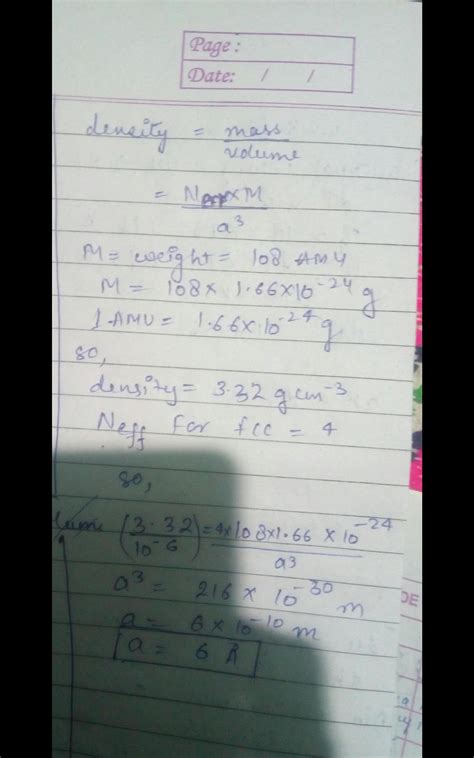 Page :
Date: / /
density = mass
volume
= Neff x M
a³
M = weight = 108 AMU
M = 108 x 1.66x10⁻²⁴ g
1 AMU = 1.66x10⁻²⁴ g
so,
density = 3.32 g cm⁻³
Neff for fcc = 4
so,
(3.32/10⁻⁶) = 4x108x1.66 x 10⁻²⁴
a³
a³ = 216 x 10⁻³⁰ m
a = 6 x 10⁻¹⁰ m
a = 6 Å